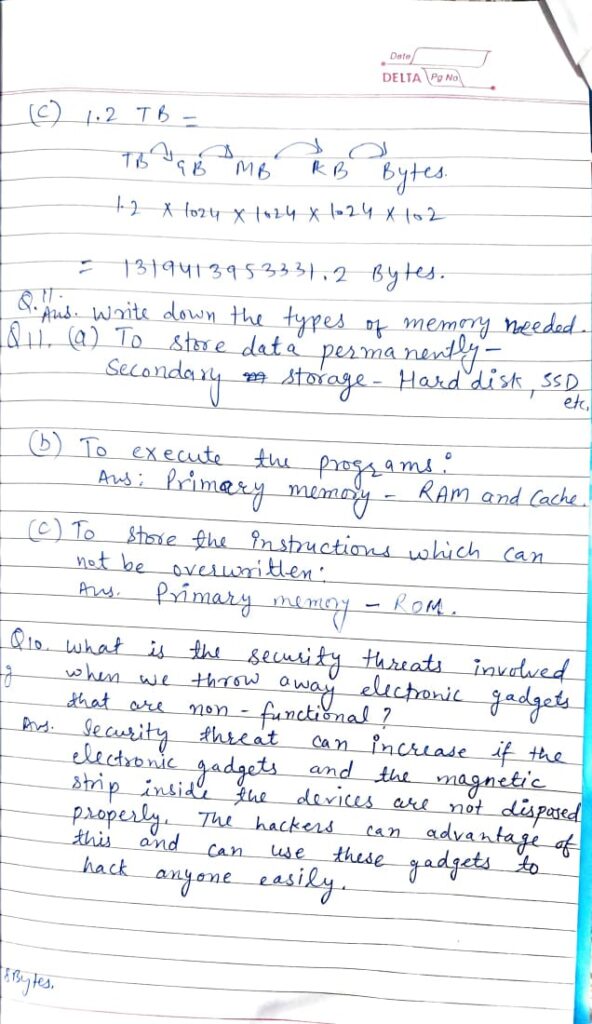 Date
DELTA Pg No
(C) 1.2 TB =
TB GB MB KB Bytes.
1.2 x 1024 x 1024 x 1024 x 102
= 1319413953331.2 Bytes.
Q.11.
Ans. Write down the types of memory needed.
Q11. (a) To store data permanently -
Secondary storage - Hard disk, SSD
etc.
(b) To execute the programs:
Ans: Primary memory - RAM and Cache.
(C) To store the instructions which can
not be overwritten:
Ans. Primary memory - ROM.
Q10. What is the security threats involved
when we throw away electronic gadgets
that are non-functional?
Ans. Security threat can increase if the
electronic gadgets and the magnetic
strip inside the devices are not disposed
properly. The hackers can advantage of
this and can use these gadgets to
hack anyone easily.
Bytes.